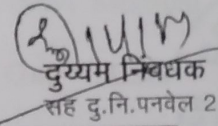 दुय्यम निबंधक
सह दु.नि.पनवेल 2